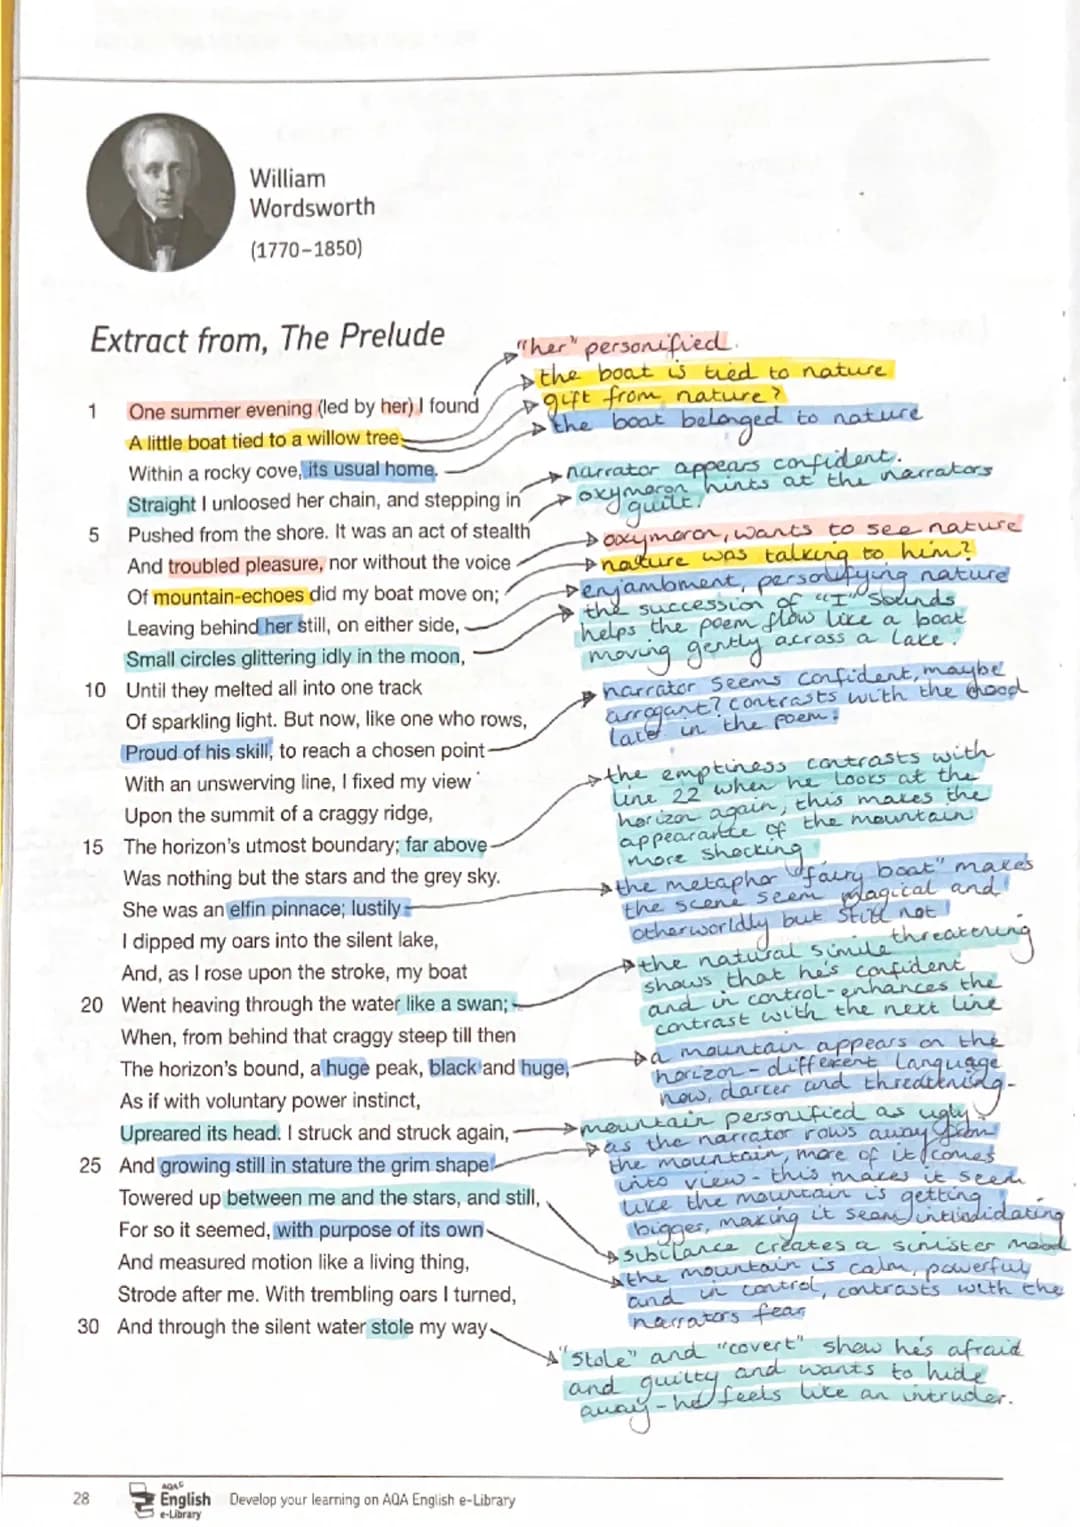 William
Wordsworth
(1770–1850)
Extract from, The Prelude
1 One summer evening (led by her) I found
A little boat tied to a willow tree
Within a rocky cove, its usual home.
Straight I unloosed her chain, and stepping in
5 Pushed from the shore. It was an act of stealth
And troubled pleasure, nor without the voice
Of mountain-echoes did my boat move on;
Leaving behind her still, on either side,
Small circles glittering idly in the moon,
10 Until they melted all into one track
Of sparkling light. But now, like one who rows,
Proud of his skill, to reach a chosen point
With an unswerving line, I fixed my view
Upon the summit of a craggy ridge,
15 The horizon's utmost boundary; far above
Was nothing but the stars and the grey sky.
She was an elfin pinnace; lustily
I dipped my oars into the silent lake,
And, as I rose upon the stroke, my boat
20 Went heaving through the water like a swan;
When, from behind that craggy steep till then
The horizon's bound, a huge peak, black and huge,
As if with voluntary power instinct,
Upreared its head. I struck and struck again,
25 And growing still in stature the grim shape
Towered up between me and the stars, and still,
For so it seemed, with purpose of its own
And measured motion like a living thing,
Strode after me. With trembling oars I turned,
30 And through the silent water stole my way
"her" personified.
the boat is tied to nature
gift from nature?
the boat belonged to nature
narrator appears confident.
oxymoron hints at the narrators
guilt.
oxymoron, wants to see nature
nature was talking to him?
enjambment, personifying nature
the succession of "I" sounds
helps the poem flow like a boat
moving gently across a lake.
narrator seems confident, maybe
arrogant? contrasts with the mood
later in the poem.
the emptiness contrasts with
line 22 when he looks at the
horizon again, this makes the
appearance of the mountain
more shocking
the metaphor "fairy boat" makes
the scene seem magical and
otherworldly but still not
threatening
the natural simile
shows that he's confident
and in control - enhances the
contrast with the next line
a mountain appears on the
horizon - different language
now, darker and threatening.
mountain personified as ugly
as the narrator rows away from
the mountain, more of it comes
into view - this makes it seem
like the mountain is getting
bigger, making it seem intimidating
sibilance creates a sinister mood
the mountain is calm, powerful
and in control, contrasts with the
narrators fear
"stole" and "covert" show he's afraid
and guilty and wants to hide
away - he feels like an intruder.
28
AQA
English
e-Library
Develop your learning on AQA English e-Library